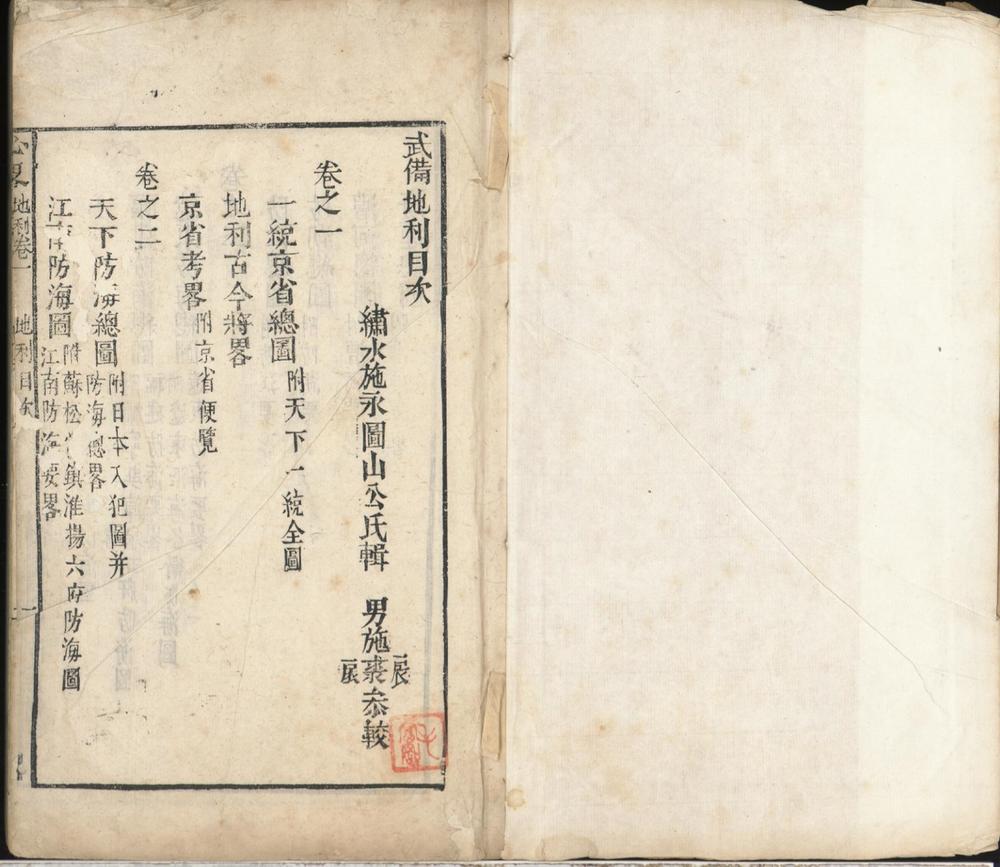 武備地利目次
繡水施永圖山公氏輯　男施裘叅較
卷之一
一統京省總圖附天下一統全圖
地利古今將畧
京省考畧附京省便覽
卷之二
天下防海總圖附日本入犯圖并防海總畧
江防海圖附蘇松鎮淮揚六府防海圖江南防海要畧
地利卷一　地利目次　一